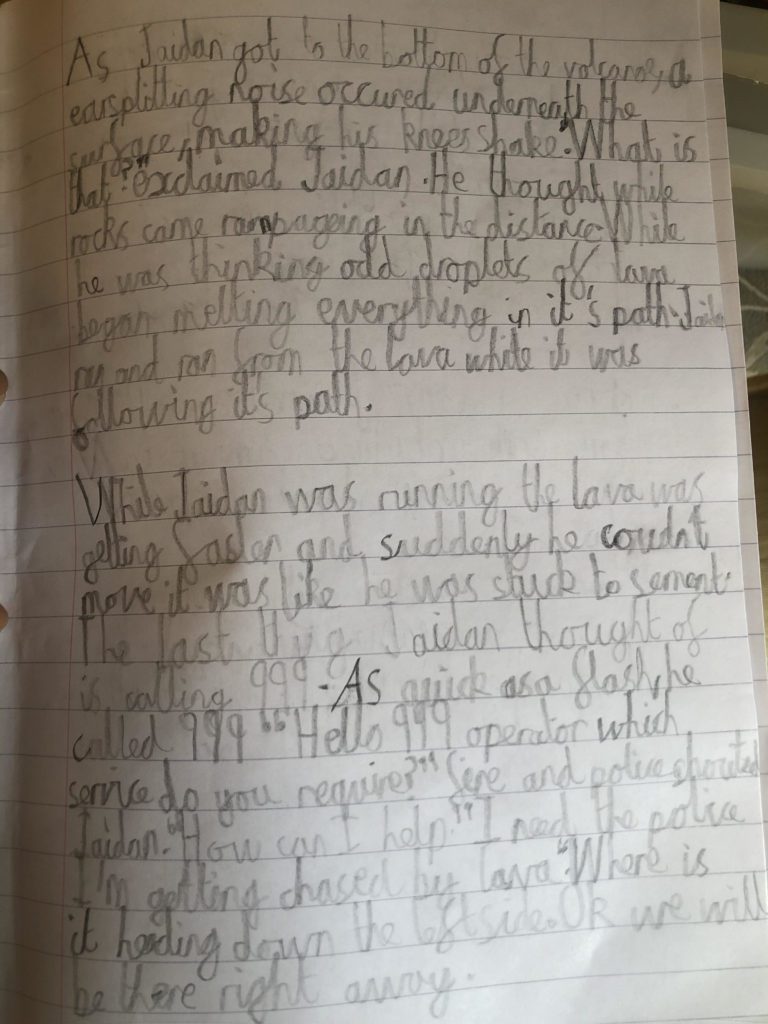 As Jaidan got to the bottom of the volcanoe, a
earsplitting noise occured underneath the
surface, making his knees shake. "What is
that?" exclaimed Jaidan. He thought while
rocks came rampageing in the distance. While
he was thinking odd droplets of lava
began melting everything in it's path. Jaida
ran and ran from the lava while it was
following it's path.
While Jaidan was running the lava was
getting faster and suddenly he coudnt
move it was like he was stuck to sement.
The last Jaidan thought of
is calling 999. As quick as a flash, he
called 999 "Hello 999 operator which
service do you require?" "fire and police shouted
Jaidan. "How can I help." "I need the police
I'm getting chased by lava". Where is
it heading down the left side. OK we will
be there right away.